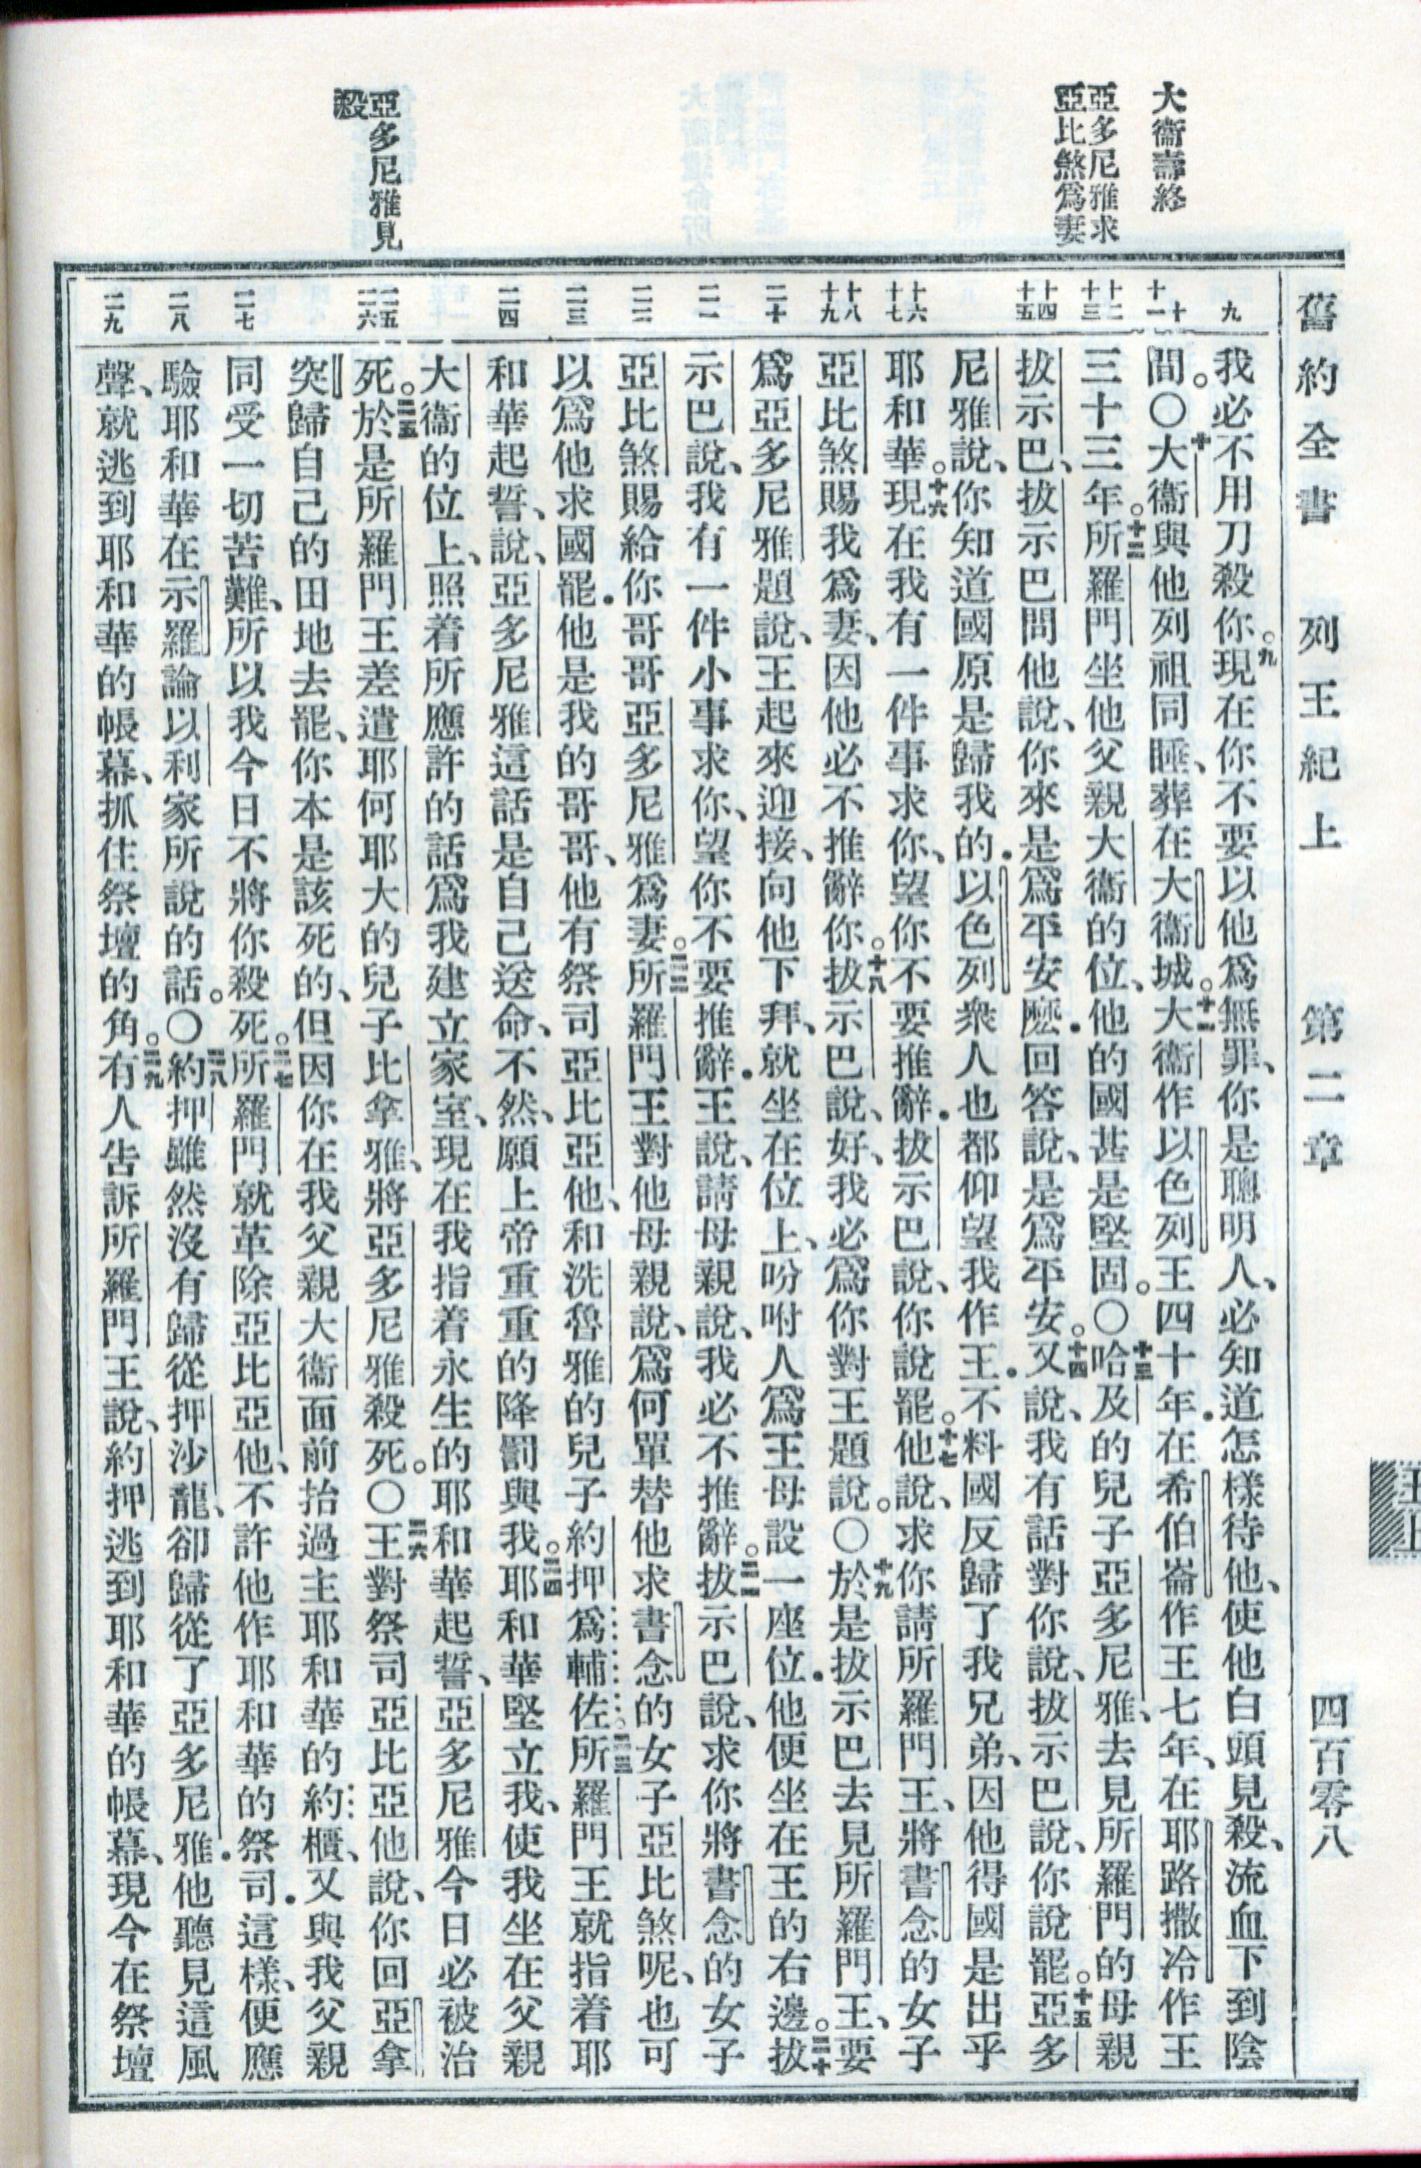 大衞壽終
亞多尼雅求
亞比煞爲妻
亞多尼雅見
殺
舊約全書 列王紀上 第二章 四百零八
王上
九
十
十一
十二
十三
十四
十五
十六
十七
十八
十九
二十
二一
二二
二三
二四
二五
二六
二七
二八
二九
我必不用刀殺你。九現在你不要以他爲無罪、你是聰明人、必知道怎樣待他、使他白頭見殺、流血下到陰
間。〇十大衞與他列祖同睡、葬在大衞城。十一大衞作以色列王四十年．在希伯崙作王七年、在耶路撒冷作王
三十三年。十二所羅門坐他父親大衞的位、他的國甚是堅固。〇十三哈及的兒子亞多尼雅、去見所羅門的母親
拔示巴、拔示巴問他說、你來是爲平安麼．回答說、是爲平安。十四又說、我有話對你說、拔示巴說、你說罷。十五亞多
尼雅說、你知道國原是歸我的．以色列衆人也都仰望我作王．不料國反歸了我兄弟、因他得國是出乎
耶和華。十六現在我有一件事求你、望你不要推辭．拔示巴說、你說罷。十七他說、求你請所羅門王、將書念的女子
亞比煞賜我爲妻、因他必不推辭你。十八拔示巴說、好、我必爲你對王題說。〇十九於是拔示巴去見所羅門王、要
爲亞多尼雅題說、王起來迎接、向他下拜、就坐在位上、吩咐人爲王母設一座位．他便坐在王的右邊。二十拔
示巴說、我有一件小事求你、望你不要推辭．王說、請母親說、我必不推辭。二一拔示巴說、求你將書念的女子
亞比煞賜給你哥哥亞多尼雅爲妻。二二所羅門王對他母親說、爲何單替他求書念的女子亞比煞呢、也可
以爲他求國罷．他是我的哥哥、他有祭司亞比亞他、和洗魯雅的兒子約押爲輔佐。二三所羅門王就指着耶
和華起誓、說、亞多尼雅這話是自己送命、不然、願上帝重重的降罰與我。二四耶和華堅立我、使我坐在父親
大衞的位上、照着所應許的話爲我建立家室、現在我指着永生的耶和華起誓、亞多尼雅今日必被治
死。二五於是所羅門王差遣耶何耶大的兒子比拿雅、將亞多尼雅殺死。〇二六王對祭司亞比亞他說、你回亞拿
突歸自己的田地去罷、你本是該死的、但因你在我父親大衞面前抬過主耶和華的約櫃、又與我父親
同受一切苦難、所以我今日不將你殺死。二七所羅門就革除亞比亞他、不許他作耶和華的祭司．這樣、便應
驗耶和華在示羅論以利家所說的話。〇二八約押雖然沒有歸從押沙龍、卻歸從了亞多尼雅．他聽見這風
聲、就逃到耶和華的帳幕、抓住祭壇的角。二九有人告訴所羅門王說、約押逃到耶和華的帳幕、現今在祭壇